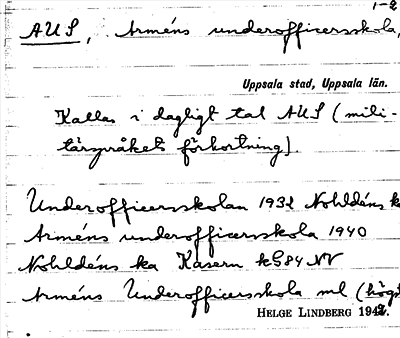 1-2
AUS, Arméns underofficersskola,
Uppsala stad, Uppsala län.
Kallas i dagligt tal AUS (mili-
tärspråkets förkortning).
Underofficersskolan 1932 Nohldéns k
Arméns underofficersskola 1940
Nohldéns ka Kasern kG84 NV
Arméns Underofficersskola ml (högst
HELGE LINDBERG 1942.